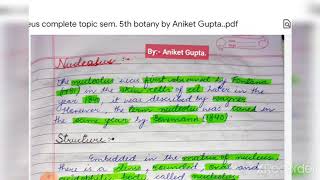 eus complete topic sem. 5th botany by Aniket Gupta..pdf
By:- Aniket Gupta.
Nucleolus:-
The nucleolus was first observed by Fontana
(1781) in the skin cells of eel. Later in the
year 1840, it was described by wagner.
However, the term nucleolus was coined in
the same year by Bowmann (1840).
Structure:-
Embedded in the matrix of nucleus,
there is a dense, rounded, oval and
acidophilic body called nucleolus.